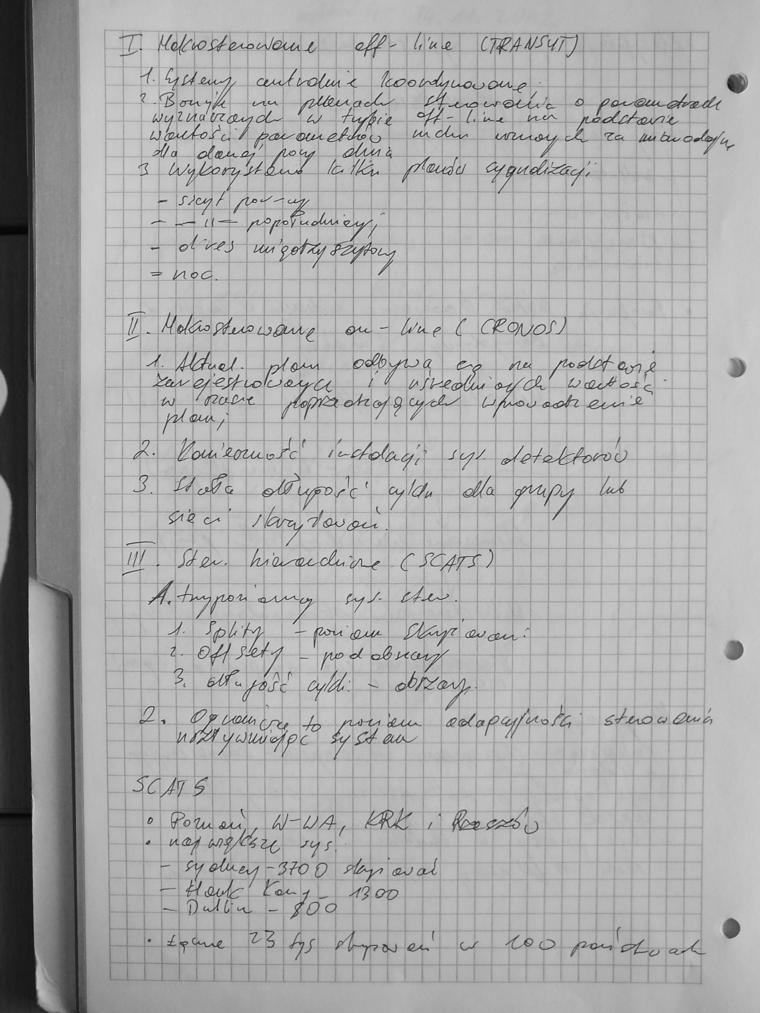 I. Makrosterowanie off-line (TRANSYT)
1. Systemy centralnie koordynowane.
2. Bazuje na planach sterowania o parametrach
wyznaczonych w trybie off-line na podstawie
wartości parametrów ruchu uznanych za miarodajne
dla danej pory dnia
3 Wykorzystanie kilku planów sygnalizacji
- szczyt poranny
- —11— popołudniowy;
- okres międzyszczytowy
= noc.
II. Makrosterowanie on-line (CRONOS)
1. Aktual. planu odbywa się na podstawie
zarejestrowanych i uśrednionych wartości
w czasie poprzedzających wprowadzenie
planu;
2. Konieczność instalacji sys detektorów
3. Stała długość cyklu dla grupy lub
sieci skrzyżowań.
III. Ster. hierarchiczne (SCATS)
A. trzypoziomowy sys. ster.
1. Splity - poziom skrzyżowań
2. Offsety - podobszary
3. długość cykli - obszary.
2. Ogranicza to poziom adaptacyjności sterowania
usztywniając system
SCATS
• Poznań, W-WA, KRK i Rzeszów
• największe sys.
- Sydney - 3700 skrzyżowań
- Honk Kong - 1300
- Dublin - 800
• Łącznie 23 tys skrzyżowań w 100 państwach